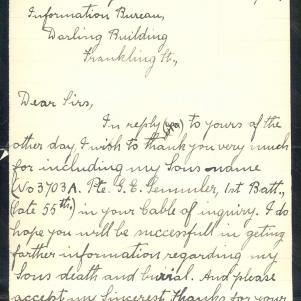 Information Bureau,
Darling Building
Frankling St.,
Dear Sirs,
In reply to yours of the
other day, I wish to thank you very much
for including my Sons name
(No 3703A. Pte. G. E. Semmler, 1st Batt.,
(late 55th,) in your Cable of inquiry. I do
hope you will be successful in geting
farther information regarding my
Sons death and burial. And please
accept my Sincerest Thanks for your